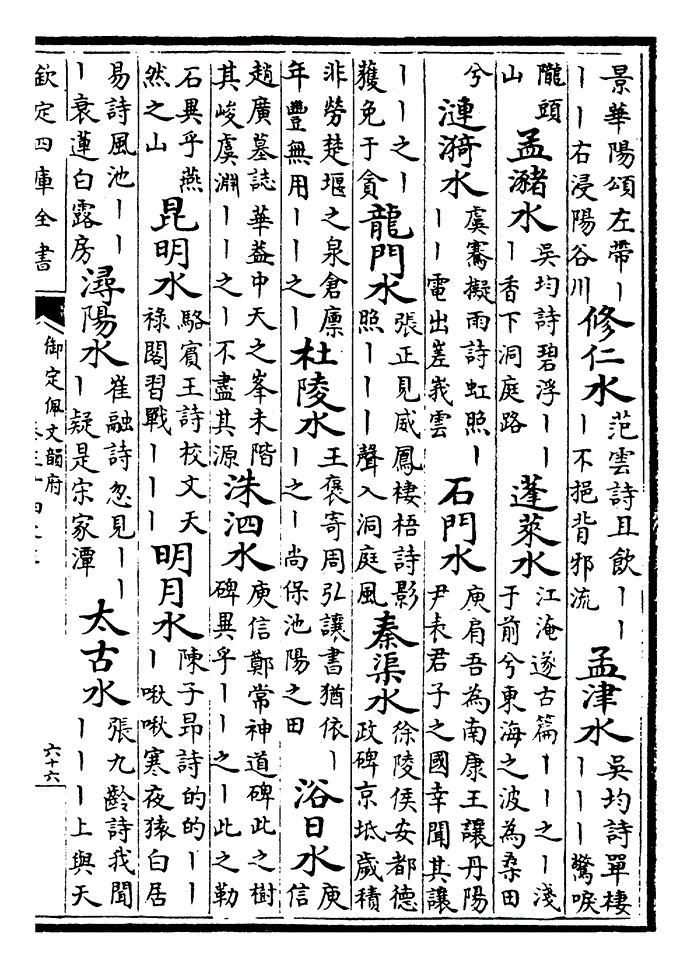 景華陽頌左帶丨丨丨右浸陽谷川 修仁水 范雲詩且飲丨丨丨不挹背邪流 孟津水 吳均詩單棲丨丨丨驚唳
隴頭山 孟瀦水 吳均詩碧浮丨丨丨香下洞庭路 蓬萊水 江淹遂古篇丨丨之丨淺于前兮東海之波為桑田
兮 漣漪水 虞騫擬雨詩虹照丨丨丨電出嵳峩雲 石門水 庾肩吾為南康王讓丹陽尹表君子之國幸聞其讓
丨丨之丨獲免于貪 龍門水 張正見威鳳棲梧詩影照丨丨丨聲入洞庭風 秦渠水 徐陵侯安都德政碑京坻歲積
非勞楚堰之泉倉廪年豐無用丨丨之丨 杜陵水 王褒寄周弘讓書猶依丨丨之丨尚保池陽之田 浴日水 庾信
趙廣墓誌華葢中天之峯未階其峻虞淵丨丨之丨不盡其源 洙泗水 庾信鄭常神道碑此之樹碑異乎丨丨之丨此之勒
石異乎燕然之山 昆明水 駱賓王詩校文天祿閣習戰丨丨丨 明月水 陳子昂詩的的丨丨丨啾啾寒夜猿白居
易詩風池丨丨丨衰蓮白露房 潯陽水 崔融詩忽見丨丨丨疑是宋家潭 太古水 張九齡詩我聞丨丨丨上與天
欽定四庫全書
御定佩文韻府
六十六